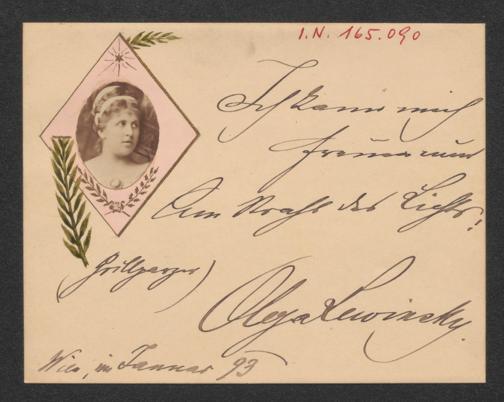 I.N. 165.090
Ich kann mich
freuen nun
Am Strahl des Lichts!
(Grillparzer)
Olga Lewinsky.
Wien, im Januar 93